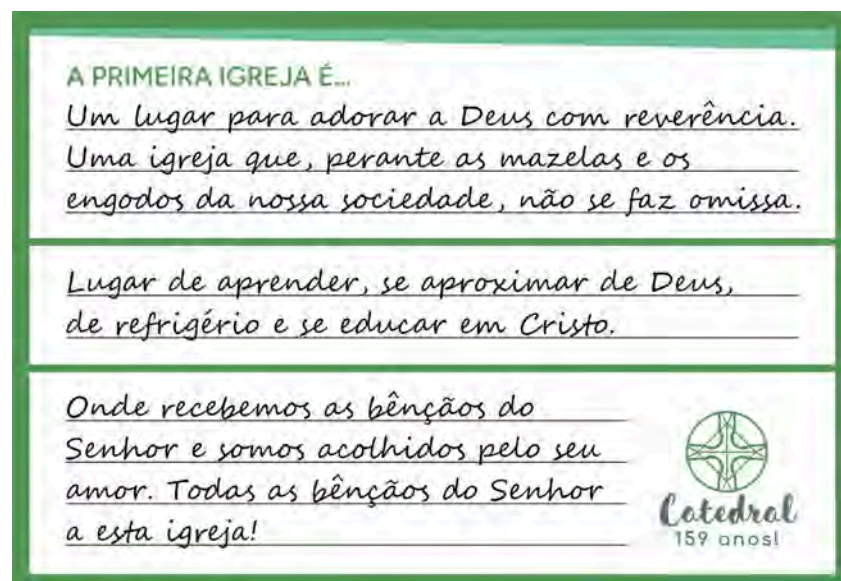 A PRIMEIRA IGREJA É...
Um lugar para adorar a Deus com reverência.
Uma igreja que, perante as mazelas e os
engodos da nossa sociedade, não se faz omissa.
Lugar de aprender, se aproximar de Deus,
de refrigério e se educar em Cristo.
Onde recebemos as bênçãos do
Senhor e somos acolhidos pelo seu
amor. Todas as bênçãos do Senhor
a esta igreja!
Catedral
159 anos!